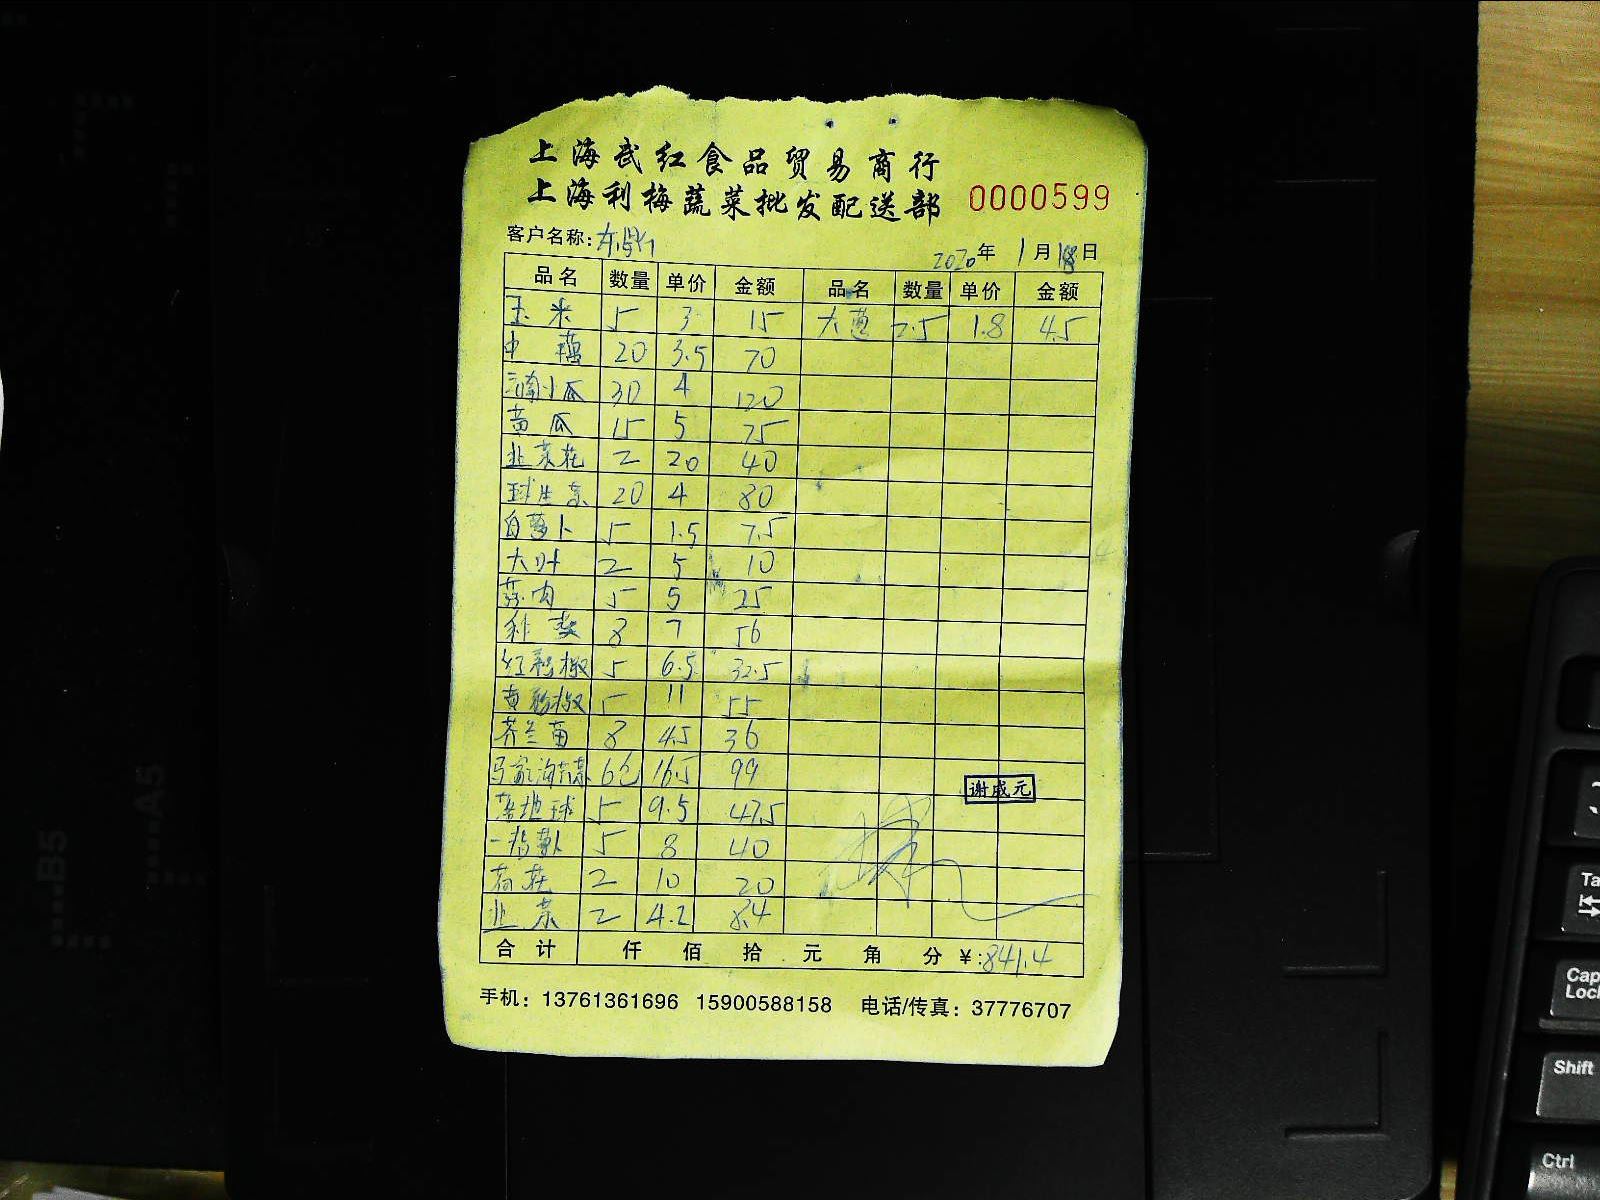 上海武红食品贸易商行
上海利梅蔬菜批发配送部 0000599
客户名称:
2020年 1月18日
品名 数量 单价 金额 品名 数量 单价 金额
玉米 5 3 15 大葱 2.5 1.8 4.5
中藕 20 3.5 70
小瓜 30 4 120
黄瓜 15 5 75
韭菜花 2 20 40
球生菜 20 4 80
白萝卜 5 1.5 7.5
大叶 2 5 10
蒜肉 5 5 25
8 7 56
红彩椒 5 6.5 32.5
黄彩椒 5 11 55
芥兰苗 8 4.5 36
6包 16.5 99
5 9.5 47.5
5 8 40
2 10 20
韭菜 2 4.2 8.4
合计 仟 佰 拾 元 角 分 ¥:841.4
谢威元
手机：13761361696 15900588158 电话/传真：37776707
B5
A5
Caps
Lock
Shift
Ctrl